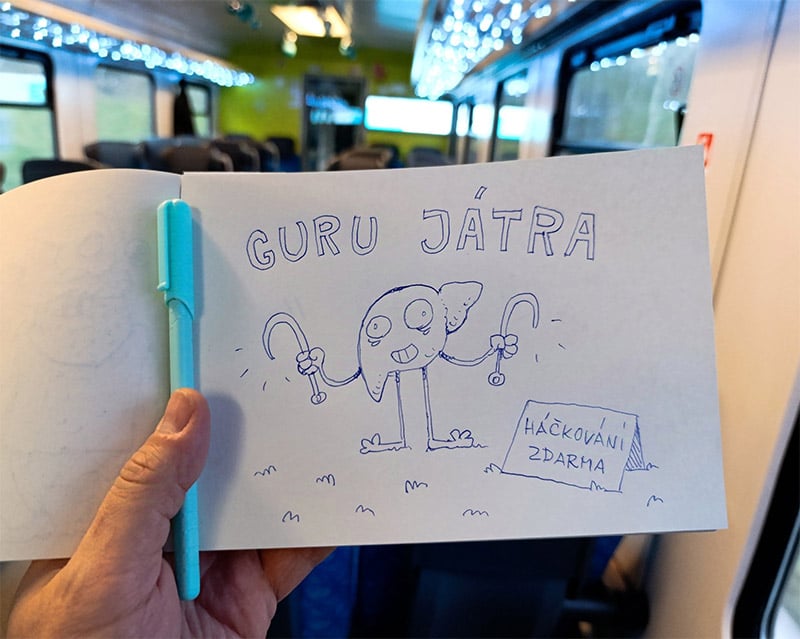 GURU JÁTRA
HÁČKOVÁNÍ
ZDARMA